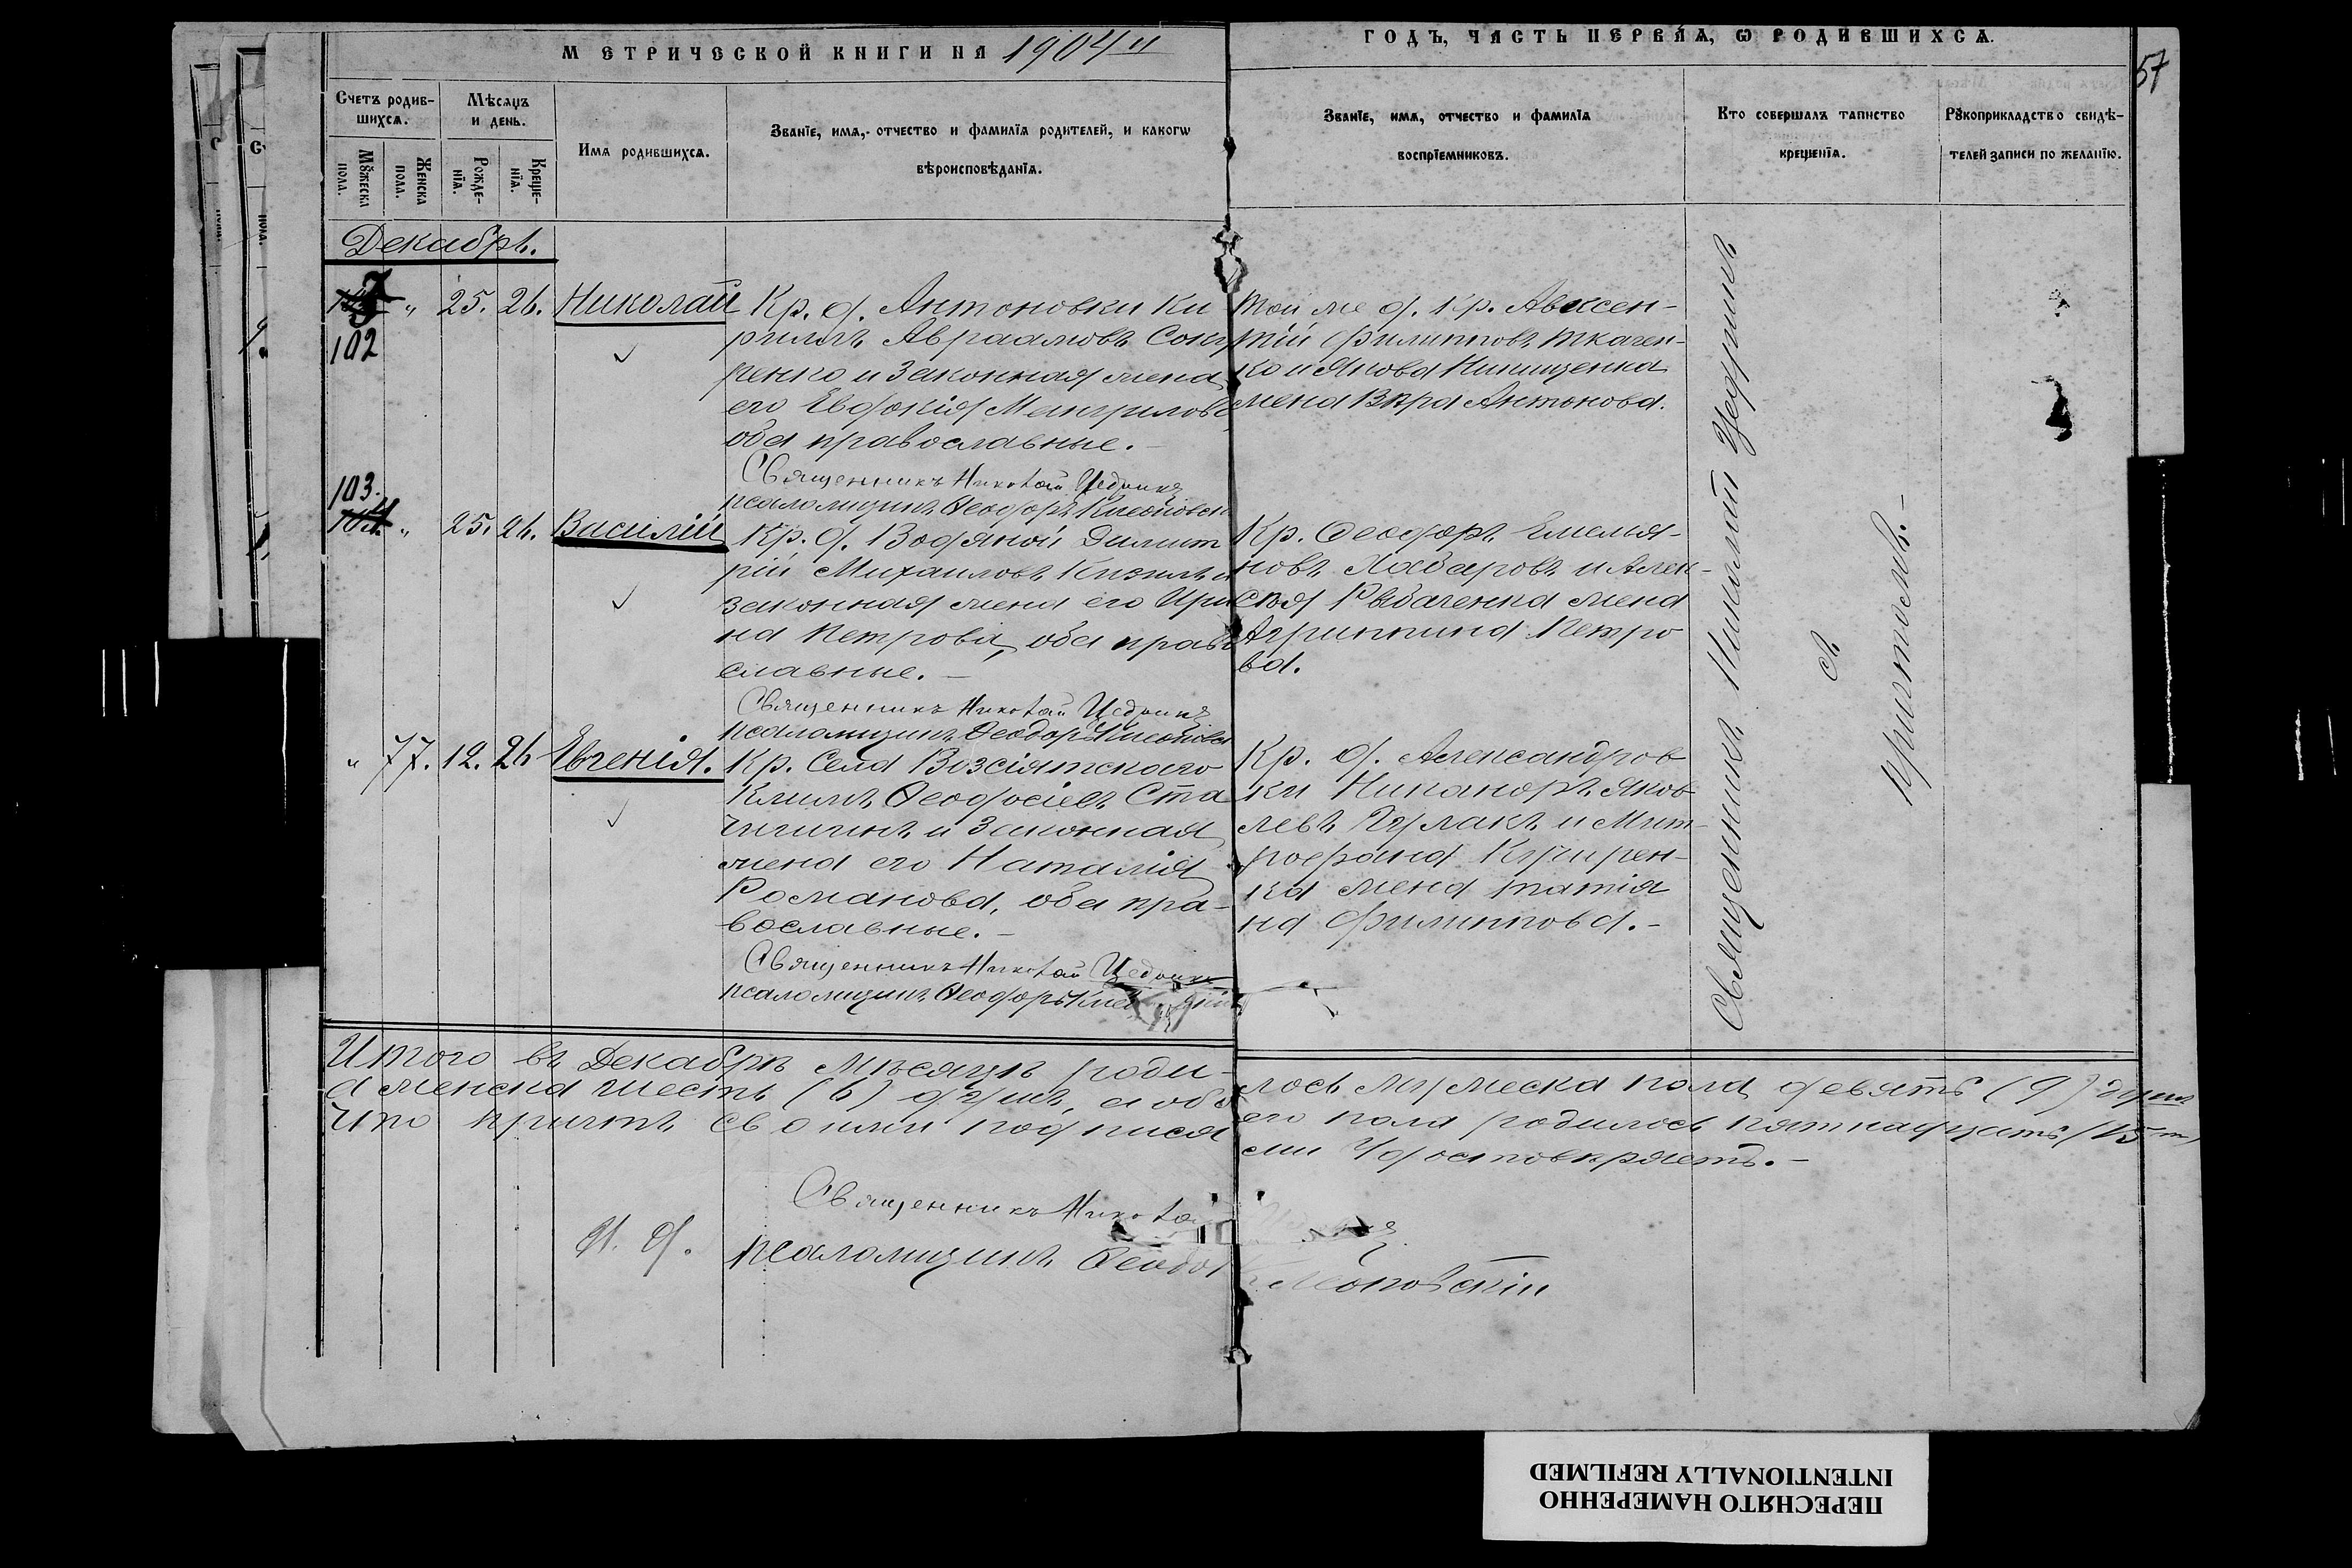 МЕТРИЧЕСКОЙ КНИГИ НА 1904 й
ГОДЪ, ЧАСТЬ ПЕРВАЯ, Ѡ РОДИВШИХСЯ.
57
Счетъ родив-
шихся.
Мѣсяцъ
и день.
Мꙋжеска
пола.
Женска
пола.
Рожде-
нїя.
Креще-
нїя.
Имя родившихся.
Званїе, имя, отчество и фамилїя родителей, и какогѡ
вѣроисповѣданїя.
Званїе, имя, отчество и фамилїя
воспрїемниковъ.
Кто совершалъ таинство
крещенїя.
Рꙋкоприкладство свидѣ-
телей записи по желанїю.
Декабрь.
102 " 25. 26. Николай
Кр. д. Антоновки Ки
риллъ Авраамовъ
ренко и законная жена
его Евдокія
оба православные. –
Священникъ Николай Цедрикъ
псаломщикъ Ѳеодоръ
Той же д. Кр. Авксен-
тій Филипповъ Ткачен-
ко и Якова Кинищенка
жена Вѣра Антонова.
103. " 25. 26. Василій
Кр. д. Водяной Димит
рій Михаиловъ Кизилъ и
законная жена его Ири
на Петрова, оба право
славные. –
Священникъ Николай Цедрикъ
псаломщикъ Ѳеодоръ
Кр. Ѳеодоръ Емелья-
новъ Хабаровъ и Алек-
сѣя Рыбаченка жена
Агриппина Петро
ва.
" 77. 12. 26 Евгенія.
Кр. Села Возсіятскаго
Климъ Ѳеодосіевъ
и законная
жена его Наталія
Романова, оба пра-
вославные. –
Священникъ Николай Цедрикъ
псаломщикъ Ѳеодоръ
Кр. д. Александров
ки Никаноръ Яков
левъ Гулакъ и Мит-
рофана Кучерен-
ка жена Татія
на Филиппова. –
Священникъ Николай Цедрикъ
съ
причтомъ. –
Итого въ Декабрѣ мѣсяцѣ роди-лось мужеска пола девять (9) душъ
а женска шесть (6) душъ, а обоего пола родилось пятнадцать (15
Что причтъ своими подписями удостовѣряетъ. –
Священникъ Николай
И. д. псаломщикъ Ѳеодоръ
ПЕРЕСНЯТО НАМЕРЕННО
INTENTIONALLY REFILMED